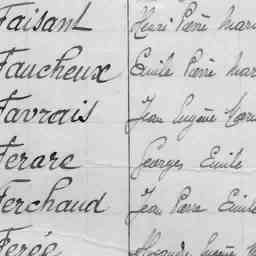 Faisant Henri Pierre Marie
Faucheux Emile Pierre Mar
Favrais Jean Eugène
Ferare Georges Emile
Ferchaud Jean Pierre Emile
Ferée Alexandre Eugène